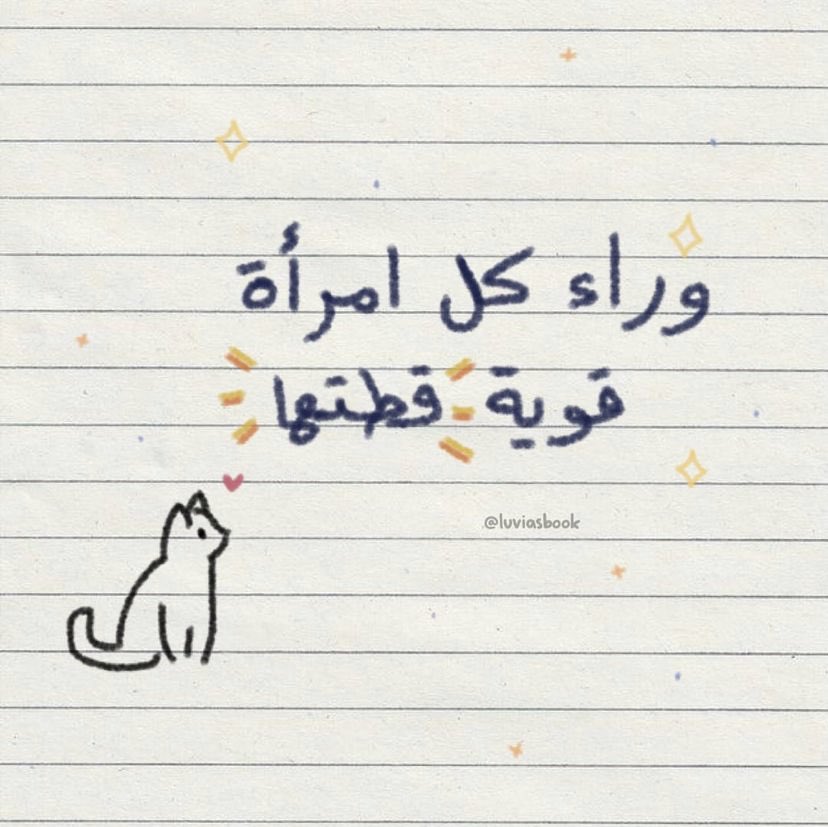 وراء كل امرأة
قوية قطتها
@luviasbook